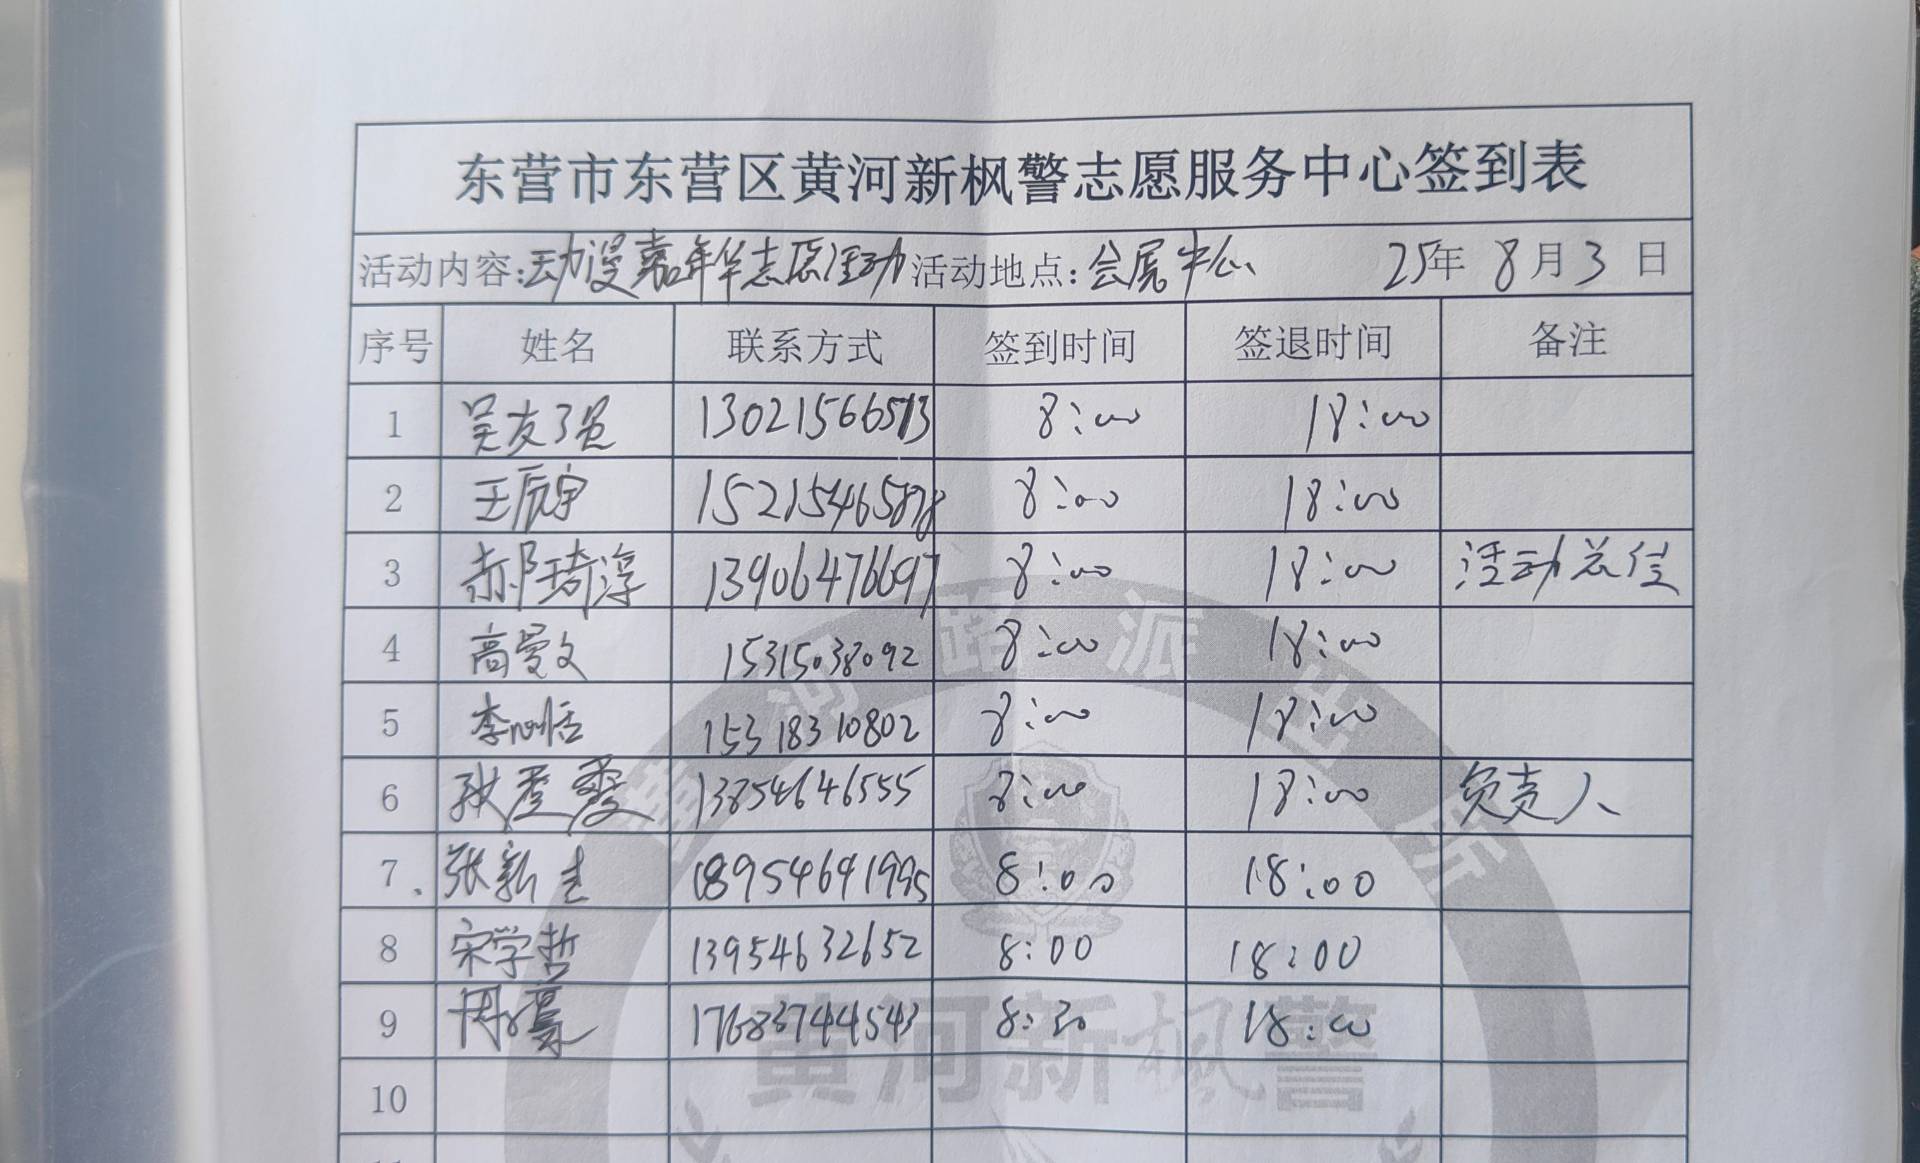 东营市东营区黄河新枫警志愿服务中心签到表
活动内容:动漫嘉年华志愿活动 活动地点:会展中心 25年 8月3日
序号 姓名 联系方式 签到时间 签退时间 备注
1 吴友强 13021566513 8:00 18:00
2 王辰宇 15215465878 8:00 18:00
3 郝琦淳 13906476697 8:00 18:00 活动总住
4 高曼文 15315038092 8:00 18:00
5 李恬 15318310802 8:00 18:00
6 13854646555 8:00 18:00 负责人
7、 张新 18954641995 8:00 18:00
8 宋学哲 13954632652 8:00 18:00
9 周豪 17683744543 8:30 18:00
10
黄河路派出所
黄河新枫警